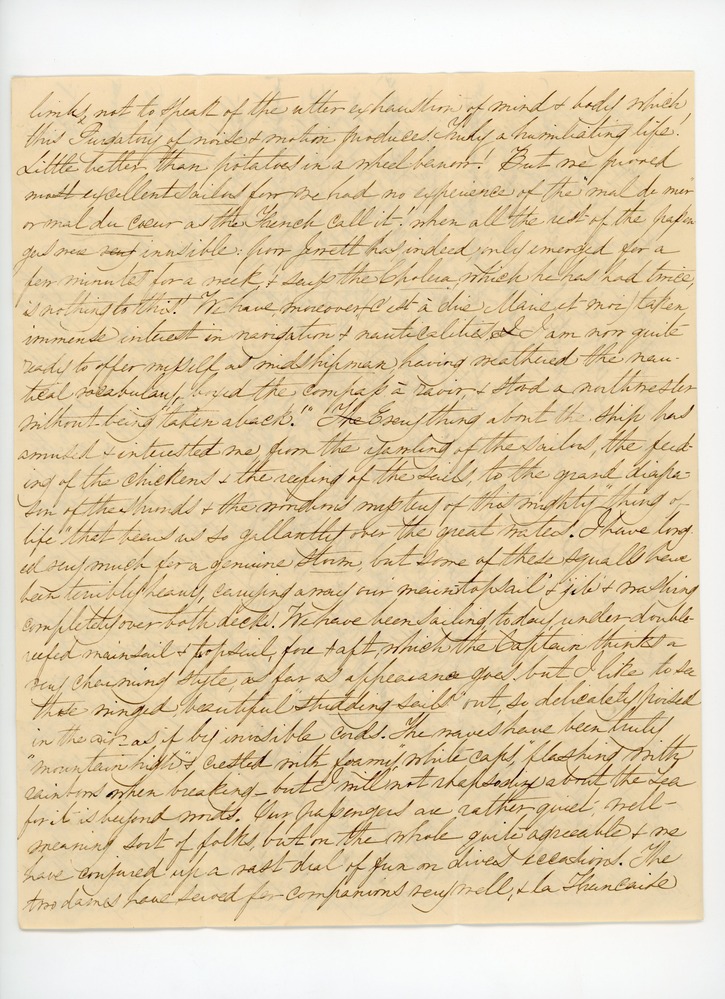 limbs, not to speak of the utter exhaustion of mind & body which
this Purgatory of noise & motion produces. Truly a humiliating life.
Little better than potatoes in a wheel barrow! But we proved
most excellent sailors for we had no experience of the "mal de mer
or mal du cœur as the French call it", when all the rest of the passen
gers were sent invisible: poor Jerrett has indeed only emerged for a
few minutes for a week, & says the Cholera, which he has had twice,
is nothing to this! We have moreover, c'est à dire Marie et moi, taken
immense interest in navigation & nauticalities, & I am now quite
ready to offer myself as midshipman having weathered the nau-
tical vocabulary, boxed the compass à ravir, & stood a northwester
without being "taken aback!" The Everything about the ship has
amused & interested me, from the yarning of the sailors, the feed-
ing of the chickens & the reefing of the sails, to the grand diapa-
son of the shrouds & the wondrous mystery of this mighty "thing of
life" that bears us so gallantly over the great waters! I have long
ed very much for a genuine storm, but some of these squalls have
been terribly heavy, carrying away our "main topsail" & "jib" & washing
completely over both decks. We have been sailing today under double
reefed mainsail & topsail, fore & aft, which the Captain thinks a
very charming style, as far as appearance goes, but I like to see
those winged beautiful "studding-sails" out, so delicately poised
in the air as if by invisible cords. The waves have been truly
"mountain high" & crested with foamy "white caps," flashing with
rainbows when breaking - but I will not rhapsodize about the sea
for it is beyond words. Our passengers are rather quiet, well-
meaning sort of folks, but on the whole quite agreeable & we
have conjured up a vast deal of fun on divers occasions. The
two dames have served for companions very well, & la Francaise